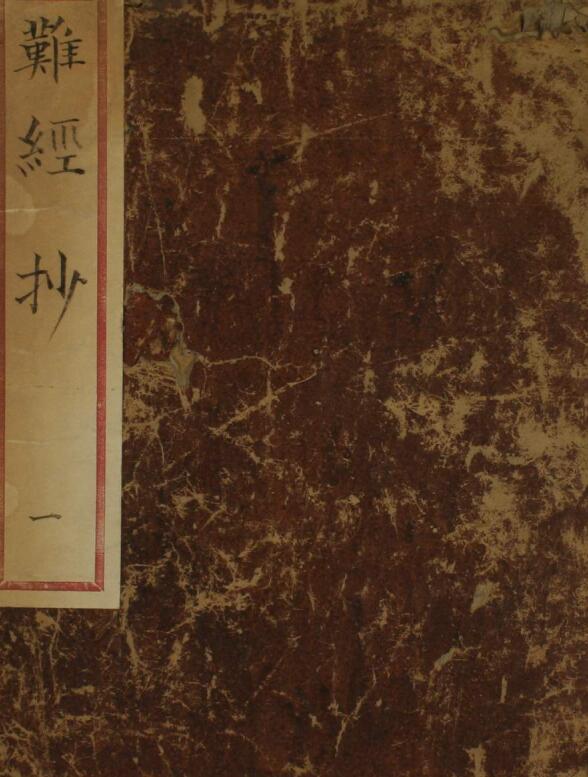 難經抄 一